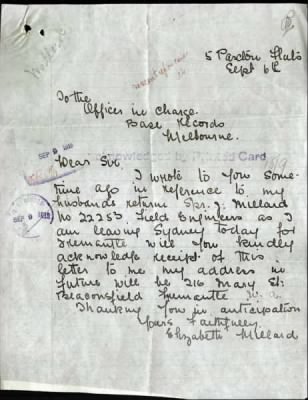 5 Paxton Flats
Sept 6th
To the
Officer in Charge
Base Records
Melbourne.
Dear Sir,
acknowledged by Card
I wrote to you some-
time ago in reference to my
husbands return Spr. J. Millard
No 22253. Field Engineers as I
am leaving Sydney today for
Fremantle will you kindly
acknowledge receipt of this
letter to me my address in
future will be 216 Mary St.
Beaconsfield Fremantle W.A.
Thanking you in anticipation
Yours Faithfully.
Elizabeth Millard